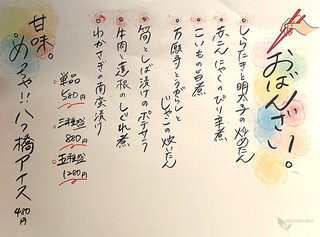 おばんざい。
しらたきと明太子の炒めたん
赤こんにゃくのぴり辛煮
こいもの旨煮
万願寺とうがらしとじゃこの炊いたん
筍としば漬けのポテサラ
牛肉と蓮根のしぐれ煮
わかさぎの南蛮漬け
単品
580円
三種盛
880円
五種盛
1280円
甘味。
めっちゃ!!八つ橋アイス
480円